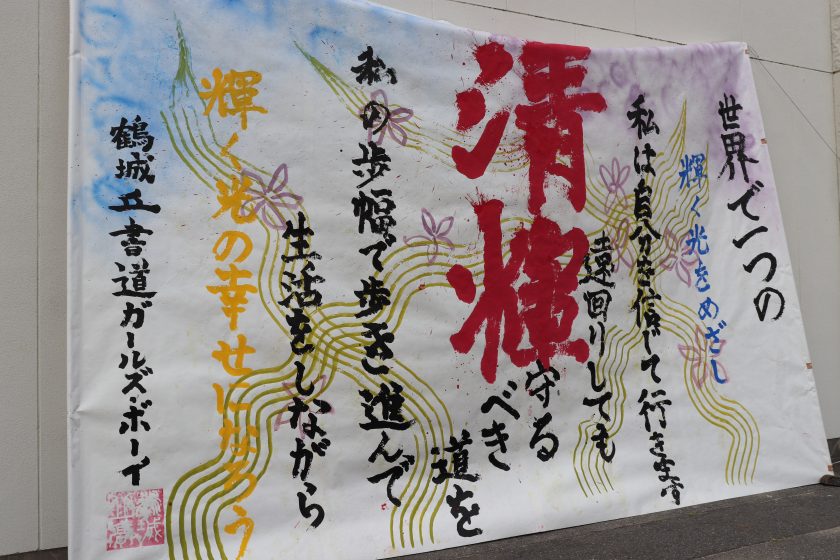 世界で一つの
輝く光をめざし
私は自分を信じて行きます
遠回りしても
清輝
守る
べき
道を
私の歩幅で歩き進んで
生活をしながら
輝く光の幸せになろう
鶴城丘書道ガールズ・ボーイ